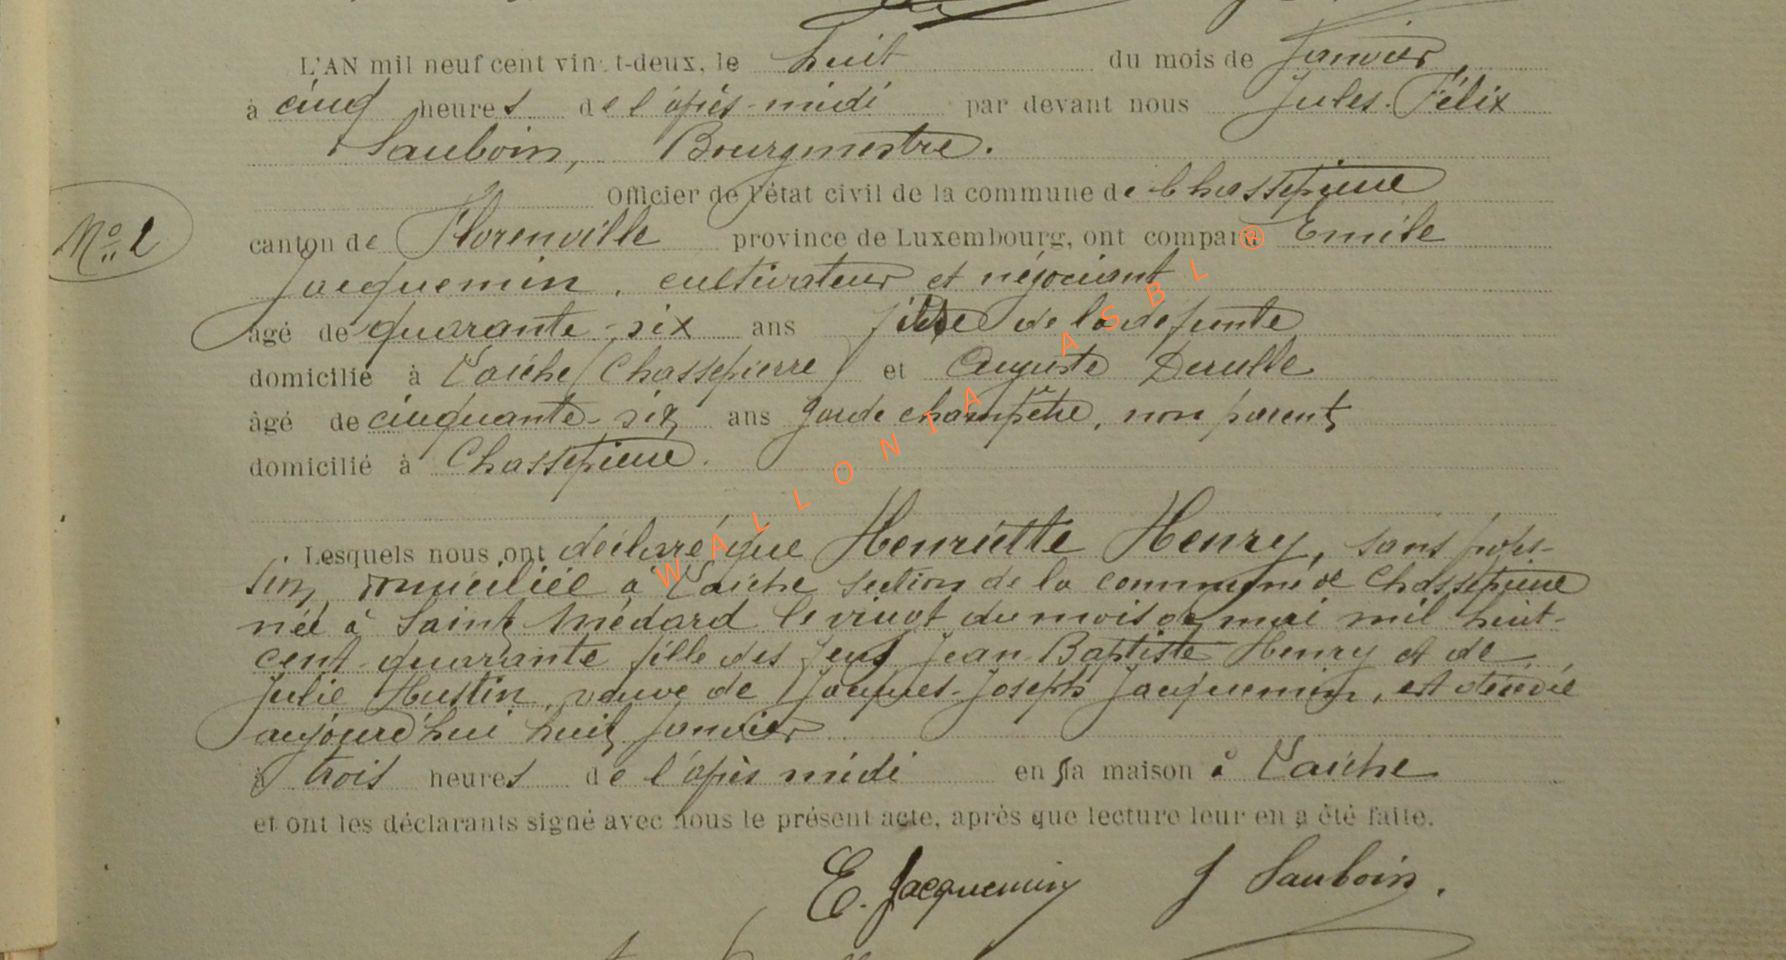 L'AN mil neuf cent vingt-deux, le huit du mois de Janvier,
à cinq heures de l'après-midi par devant nous Jules-Félix
Sauboin, Bourgmestre.
Officier de l'état civil de la commune de Chassepierre
N° 2
canton de Florenville province de Luxembourg, ont comparu Emile
Jacquemin, cultivateur et négociant
âgé de quarante-six ans fils de la défunte
domicilié à Laiche (Chassepierre) et Auguste Derulle
âgé de cinquante-six ans garde champêtre, non parent,
domicilié à Chassepierre.
Lesquels nous ont déclaré que Henriette Henry, sans profes-
sion, domiciliée à Laiche section de la commune de Chassepierre
née à Saint Médard le vingt du mois de mai mil huit-
cent-quarante fille des feus Jean Baptiste Henry et de
Julie Hustin, veuve de Jacques-Joseph Jacquemin, est décédée
aujourd'hui huit Janvier
à trois heures de l'après midi en sa maison à Laiche
et ont les déclarants signé avec nous le présent acte, après que lecture leur en a été faite.
E. Jacquemin J Sauboin.
WALLONIA ASBL ®